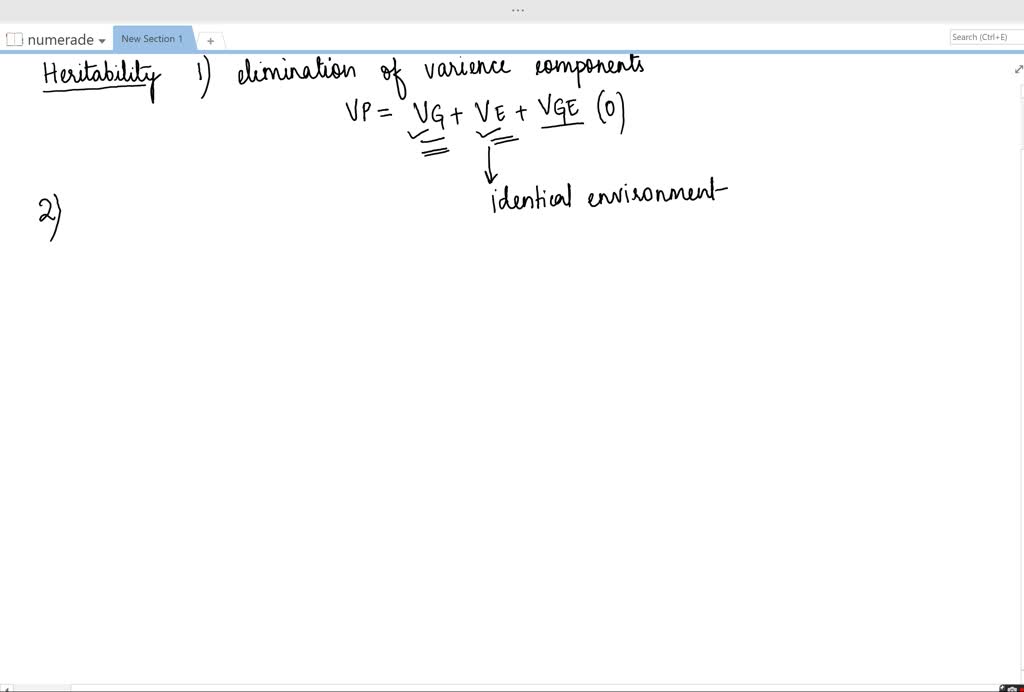 ...
numerade
New Section 1
+
Search (Ctrl+E)
Heritability 1) elimination of varience components
VP = VG + VE + VGE (0)
identical environment
2)